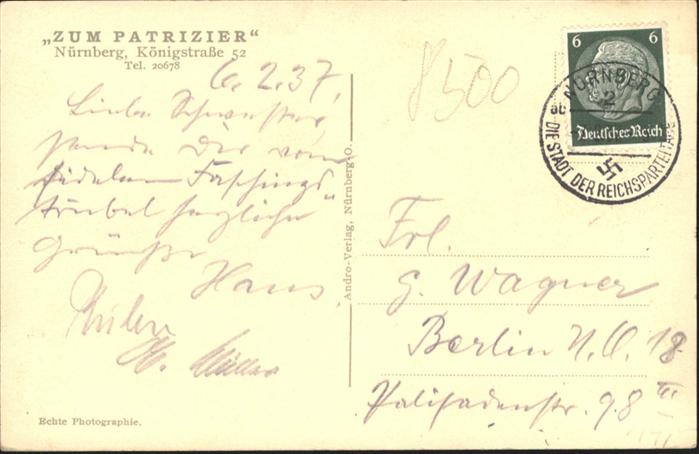 „ZUM PATRIZIER“
Nürnberg, Königstraße 52
Tel. 20678
6.2.37.
Liebe Schwester,
sende Dir vom
fidelen Faschings
trubel herzliche
Grüße
Hans
Müller
Echte Photographie.
Andro-Verlag, Nürnberg O.
8500
6 6
Deutsches Reich
NÜRNBERG
2
DIE STADT DER REICHSPARTEITAGE
Frl.
G. Wagner
Berlin N.O. 18
Palisadenstr. 98 III